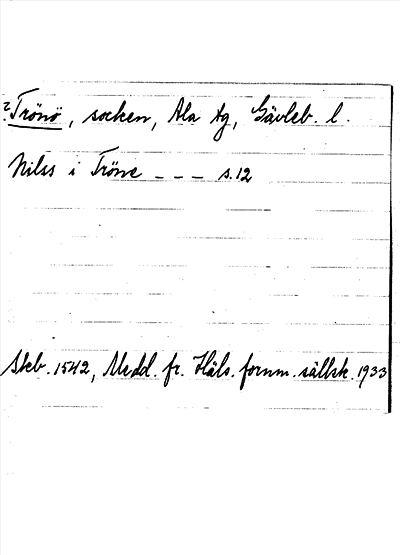 ? Trönö, socken, Ala tg, Gävleb. l.
Nilss i Tröne - - - s. 12
Skb. 1542, Medd. fr. Häls. fornm. sällsk. 1933